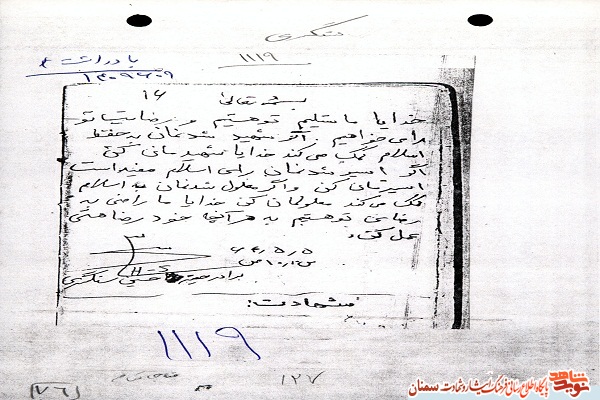 سنگسری
۱۱۱۹
یادداشت ۴
۱۳۰۹۶۰۹
۱۶ بسمه تعالی
خدایا ما تسلیم تو هستیم و رضایت تو
را می خواهیم اگر شهید شدنمان به حفظ
اسلام کمک می کند خدایا شهیدمان کن
اگر اسیر شدنمان برای اسلام مفید است
اسیرمان کن و اگر معلول شدنمان به اسلام
کمک می کند معلولمان کن خدایا ما راضی به
رضای تو هستیم به هر آنچه خود رضا هستی
عمل کن
۶۶,۵,۵
برادر حسنی سنگسری
شهادت:
۱۱۱۹
۱۲۷
(۷۶)
شاهد
نوید
پایگاه اطلاع رسانی فرهنگ ایثار و شهادت سمنان